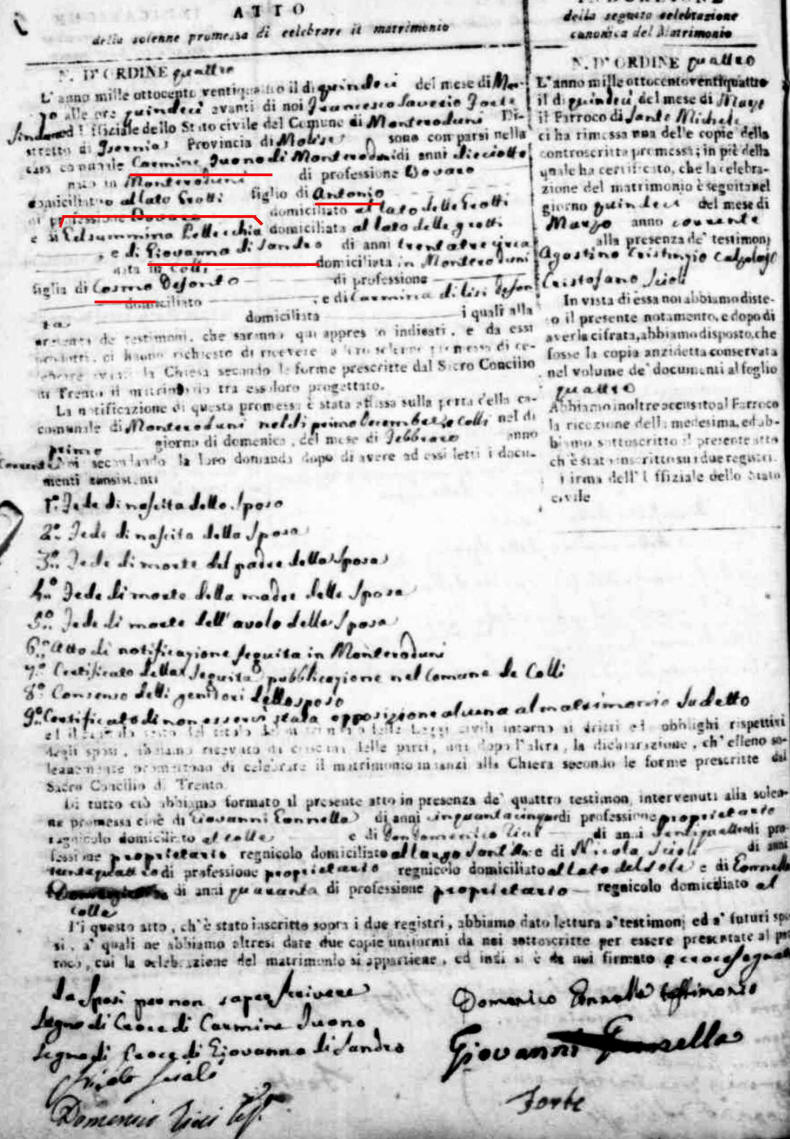 ATTO
della solenne promessa di celebrare il matrimonio
N. D'ORDINE quattro
L'anno mille ottocento ventiquattro il di quindeci del mese di Mar-
zo alle ore quindeci avanti di noi Francesco Saverio Forte
Sindaco ed Uffiziale dello Stato civile del Comune di Monteroduni Di-
stretto di Isernia Provincia di Molise sono comparsi nella
casa comunale Carmine Iuono di Monteroduni di anni dieciotto
nato in Monteroduni di professione Bovaro
domiciliato al lato Grotti figlio di Antonio
di professione Bovaro domiciliato al lato delle Grotti
e di Gelsummina Pettecchia domiciliata al lato delle grotti
e di Giovanna di Sandro di anni trentatre circa
nata in Colli domiciliata in Monteroduni
figlia di Cosmo Defonto di professione
domiciliato e di Carmina di Lisi defon
ta domiciliata i quali alla
presenza de' testimoni, che saranno qui appresso indicati, e da essi
prodotti, ci hanno richiesto di ricevere la loro solenne promessa di ce-
lebrare avanti la Chiesa secondo le forme prescritte dal Sacro Concilio
di Trento il matrimonio tra essi loro progettato.
La notificazione di questa promessa è stata affissa sulla porta della ca-
comunale di Monteroduni nel di primo e Colli nel di
primo giorno di domenica, del mese di Febbraro anno
corrente Noi secondando la loro domanda dopo di avere ad essi letti i docu-
menti consistenti
1º. Fede di nascita dello Sposo
2º. Fede di nascita della Sposa
3º. Fede di morte del padre della Sposa
4º. Fede di morte della madre della Sposa
5º. Fede di morte dell'avolo della Sposa
6º. Atto di notificazione seguita in Monteroduni
7º. Certificato della seguita pubblicazione nel Comune de Colli
8º. Consenso delli genitori dello sposo
9º. Certificato di non esservi stata opposizione alcuna al matrimonio sudetto
ed il secondo sesto del titolo del matrimonio delle Leggi civili intorno ai dritti ed obblighi rispettivi
degli sposi, abbiamo ricevuto da ciascuna delle parti, una dopo l'altra, la dichiarazione, ch'elleno so-
lennemente promettono di celebrare il matrimonio innanzi alla Chiesa secondo le forme prescritte dal
Sacro Concilio di Trento.
Di tutto ciò abbiamo formato il presente atto in presenza de' quattro testimonj intervenuti alla solen-
ne promessa cioè di Giovanni Ionnella di anni cinquantacinque di professione proprietario
regnicolo domiciliato al colle e di Don Domenico di anni ventiquattro di pro-
fessione proprietario regnicolo domiciliato al largo e di Nicola Scioli di anni
di professione proprietario regnicolo domiciliato al lato del sole e di
di anni quaranta di professione proprietario regnicolo domiciliato al
colle
Di questo atto, ch'è stato inscritto sopra i due registri, abbiamo dato lettura a' testimonj ed a' futuri spo-
si, a' quali ne abbiamo altresì date due copie uniformi da noi sottoscritte per essere presentate al par-
roco, cui la celebrazione del matrimonio si appartiene, ed indi si è da noi firmato e crocesegnato
da Sposi per non saper scrivere
Segno di Croce di Carmine Iuono
Segno di Croce di Giovanna di Sandro
Nicola Scioli
Domenico
Domenico Ionnella testimonio
Giovanni
Forte
della seguita celebrazione
canonica del Matrimonio
N. D'ORDINE quattro
L'anno mille ottocento ventiquattro
il di quindeci del mese di Marzo
il Parroco di Santo Michele
ci ha rimessa una delle copie della
controscritta promessa; in piè della
quale ha certificato, che la celebra-
zione del matrimonio è seguita nel
giorno quindeci del mese di
Marzo anno corrente
alla presenza de' testimonj
Agostino
Cristofano Scioli
In vista di essa noi abbiamo diste-
so il presente notamento, e dopo di
averla cifrata, abbiamo disposto, che
fosse la copia anzidetta conservata
nel volume de' documenti al foglio
quattro
Abbiamo inoltre accusato al Parroco
la ricezione della medesima, ed ab-
biamo sottoscritto il presente atto
ch'è stato inscritto su i due registri.
Firma dell'Uffiziale dello Stato
civile